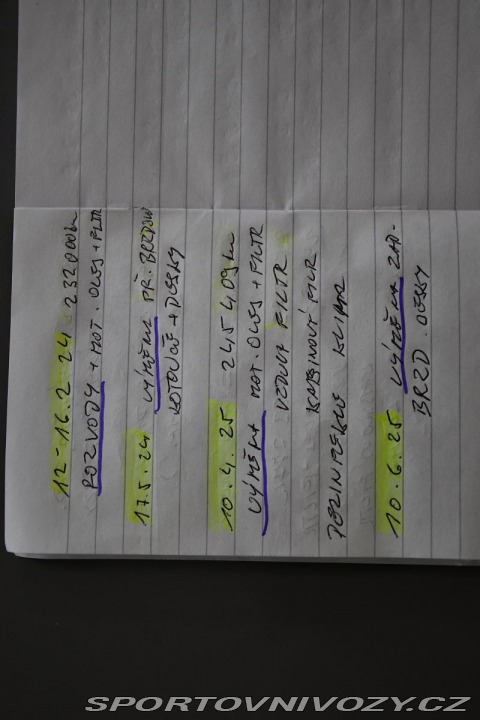 12-16.2 24 232000km
ROZVODY + MOT. OLEJ + FILTR
17.5.24 VÝMĚNA PŘ. BRZDOV
KOTOUČE + DESKY
10.4.25 245409km
VÝMĚNA MOT. OLEJ + FILTR
VZDUCH FILTR
KABINOVÝ FILTR
DEZINFEKCE KLIMA
10.6.25 VÝMĚNA ZAD.
BRZD. DESKY
SPORTOVNIVOZY.CZ